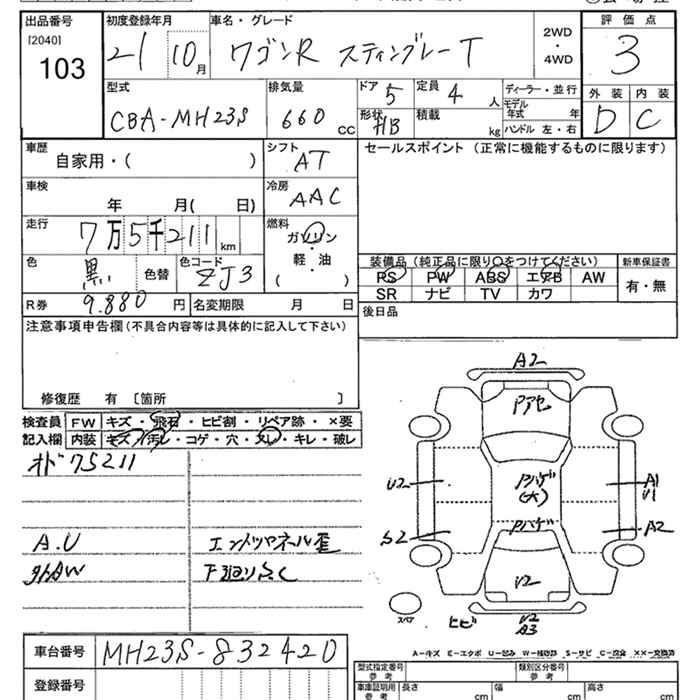 出品番号 初度登録年月 車名・グレード 評価点
[2040]
103
21 10月 ワゴンR スティングレーT
2WD
・
4WD
3
型式 排気量 ドア 定員 ディーラー・並行 外装 内装
CBA-MH23S 660 CC 5 4 人
モデル年式 年
形状 HB 積載 kg ハンドル 左・右
D C
車歴 シフト セールスポイント(正常に機能するものに限ります)
自家用・( ) AT
車検 冷房
年 月( 日) AAC
走行 燃料
7万5千211km ガソリン
・
軽・油
・
( )
色 色コード 装備品(純正品に限り○をつけてください) 新車保証書
黒 色替 ZJ3
PS PW ABS エアB AW 有・無
SR ナビ TV カワ
R券 9.880 円 名変期限 月 日 後日品
注意事項申告欄(不具合内容等は具体的に記入して下さい)
修復歴 有 〔箇所 〕
検査員 FW キズ・飛石・ヒビ割・リペア跡・×要
記入欄 内装 キズ・汚レ・コゲ・穴・スレ・キレ・破レ
オド75211
A.U エンジンパネル歪
外AW 下廻りふく
A2
Pアセ
U2 Pハゲ A1
(大) U1
Pハゲ
S2 A2
U2
スペア ヒビ U2
A3
A-キズ E-エクボ U-凹み W-補修跡 S-サビ C-腐食 XX-交換済
車台番号 MH23S-832420
登録番号
型式指定番号 参考 類別区分番号 参考
車庫証明用 参考 長さ cm 幅 cm 高さ cm